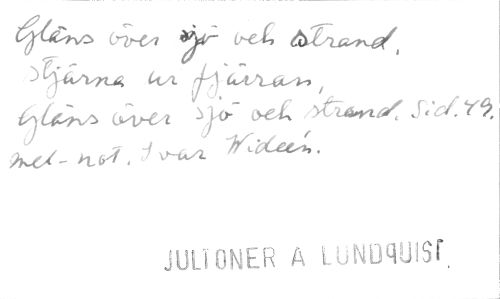 Gläns över sjö och strand,
stjärna ur fjärran,
Gläns över sjö och strand. Sid. 49.
mel-not. Ivar Wideén.
JULTONER A LUNDQUIST.